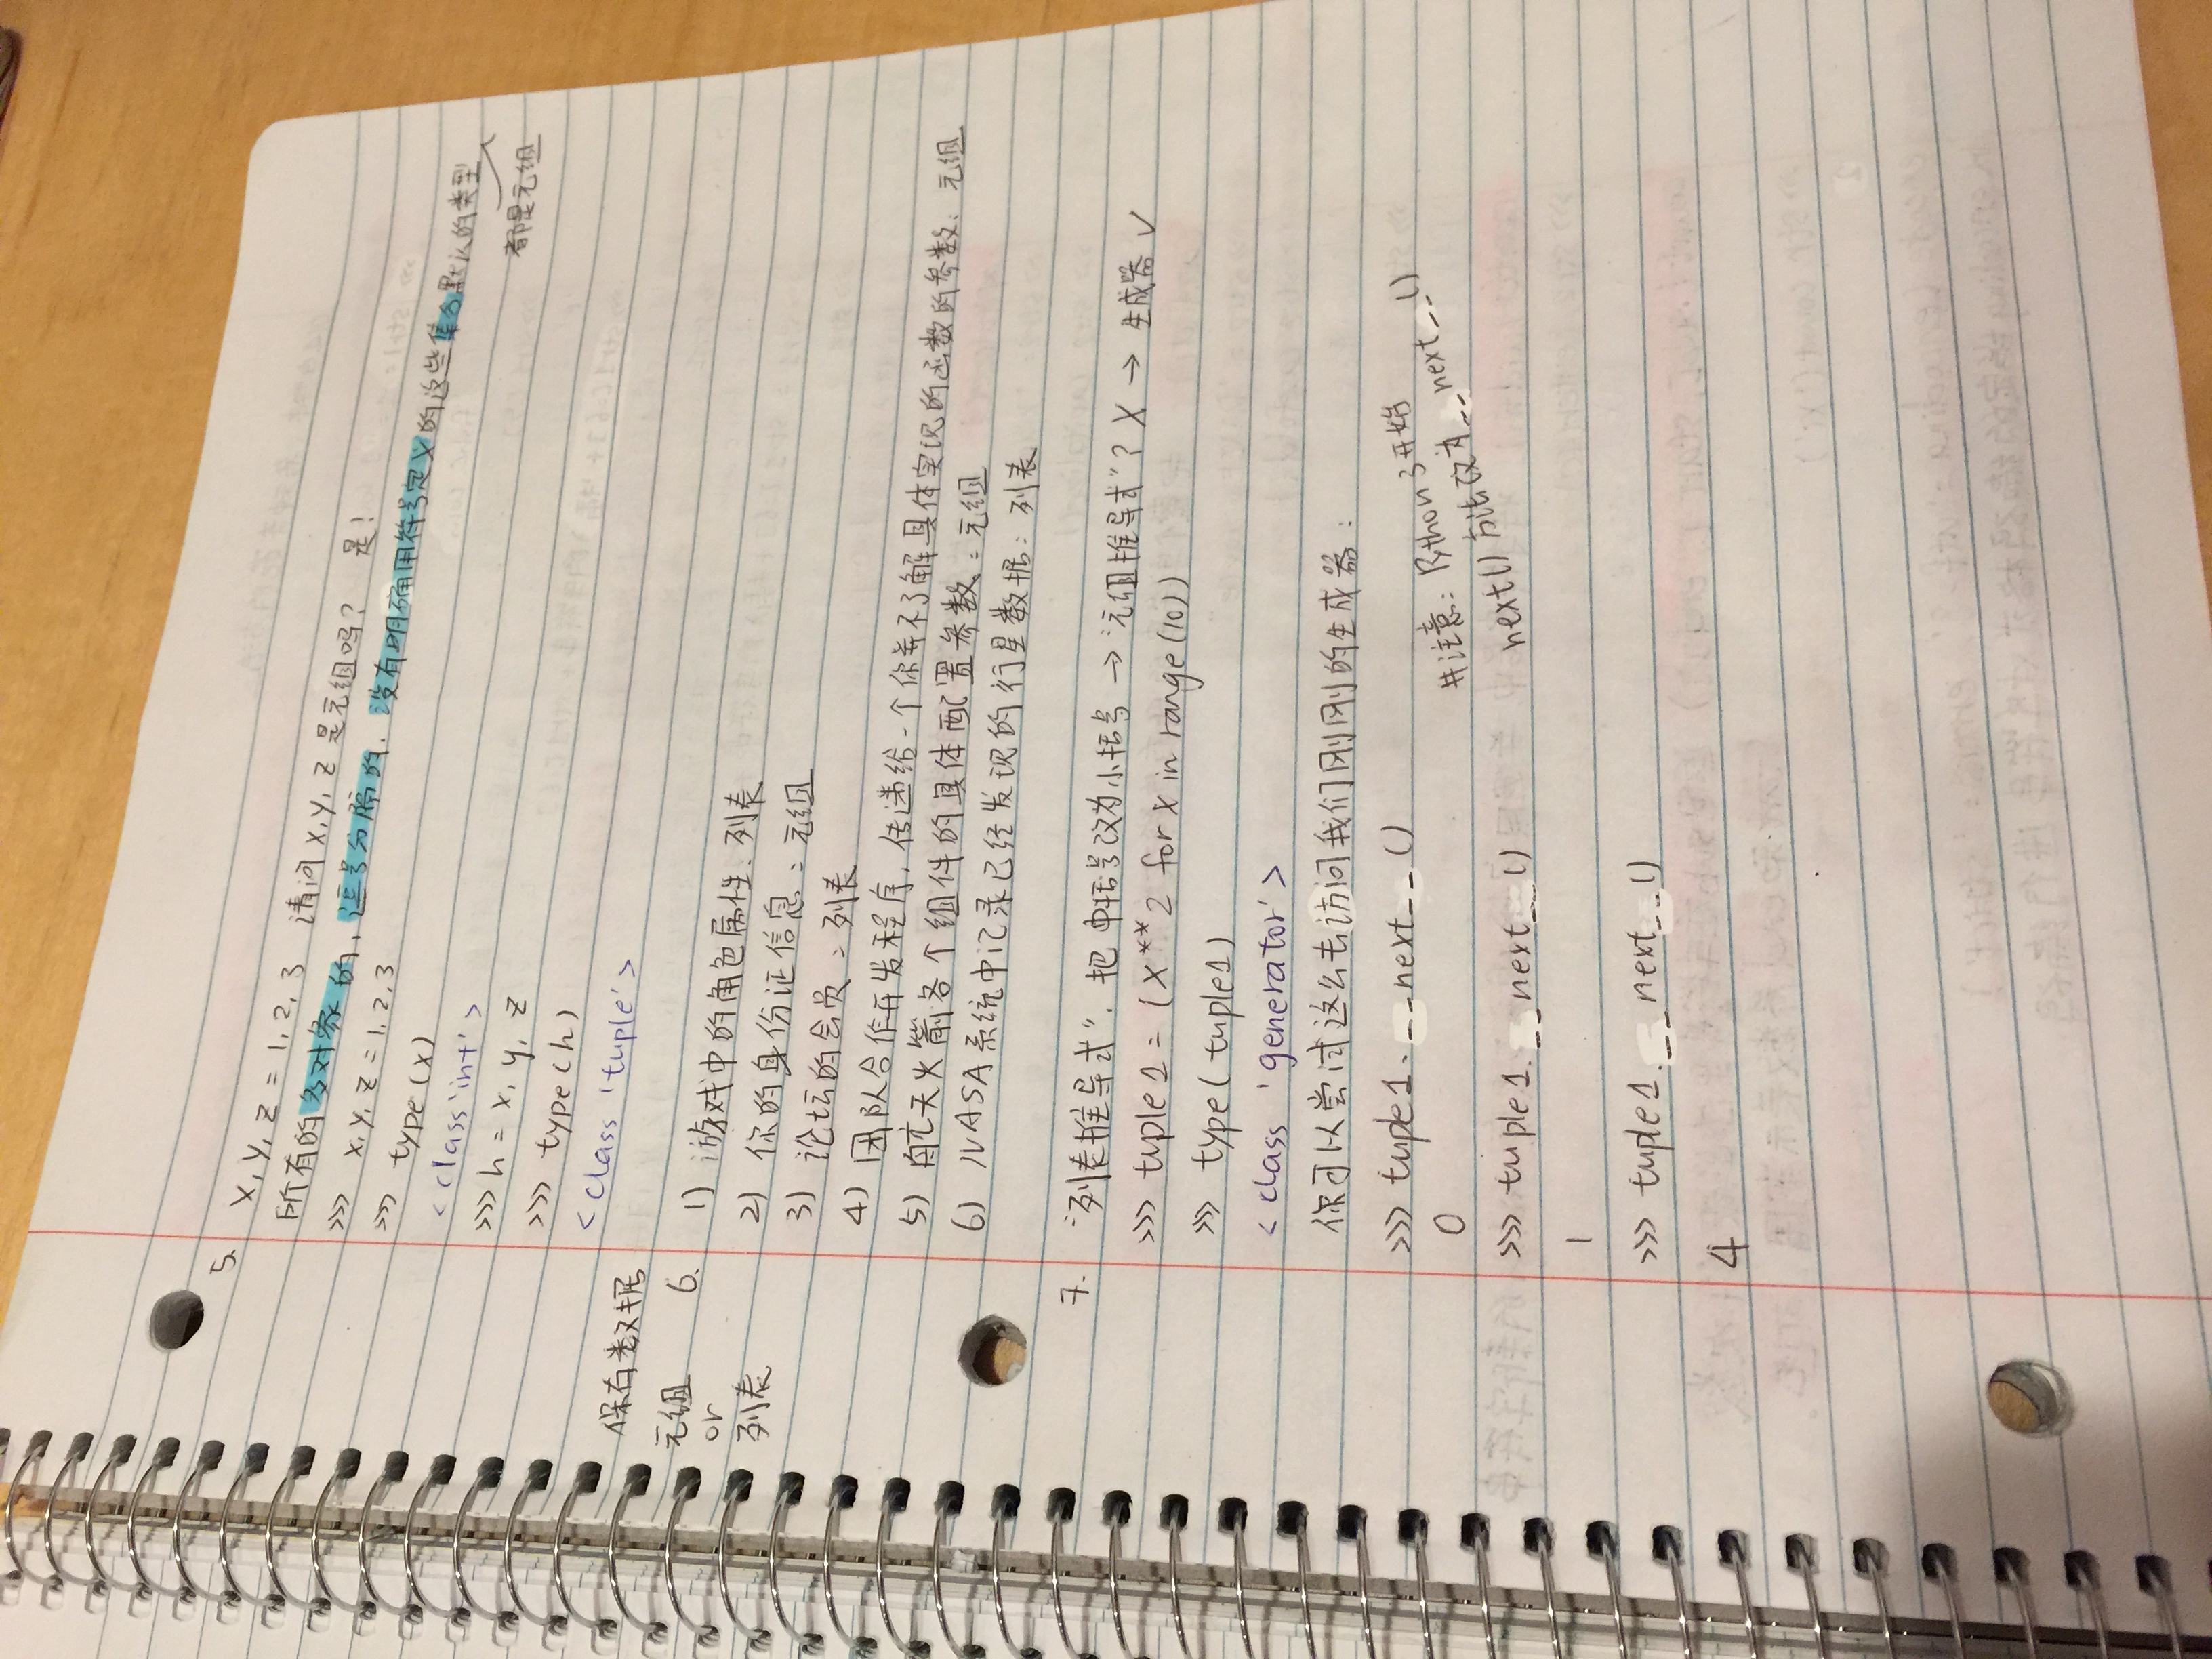 5. x, y, z = 1, 2, 3 请问 x, y, z 是元组吗? 是!
所有的多对象的, 逗号分隔的, 没有明确用符号定义的这些集合默认的类型
都是元组
>>> x, y, z = 1, 2, 3
>>> type(x)
<class 'int'>
>>> h = x, y, z
>>> type(h)
<class 'tuple'>
保存数据
元组
or
列表
6. 1) 游戏中的角色属性: 列表
2) 你的身份证信息: 元组
3) 论坛的会员: 列表
4) 团队合作开发程序, 传递给一个你并不了解具体实现的函数的参数: 元组
5) 航天火箭各个组件的具体配置参数: 元组
6) NASA系统中记录已经发现的行星数据: 列表
7. "列表推导式". 把中括号改为小括号 → "元组推导式"? X → 生成器 ✓
>>> tuple1 = (x**2 for x in range(10))
>>> type(tuple1)
<class 'generator'>
你可以尝试这么去访问我们刚刚的生成器:
>>> tuple1.__next__()
#注意: Python3开始
next()方法改为__next__()
0
>>> tuple1.__next__()
1
>>> tuple1.__next__()
4